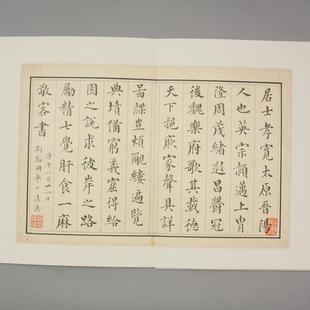 居士孝寬太原晉陽
人也英宗穎邁上冑
隆周茂遐昌鬱冠
後魏樂府歌其載德
天下挹厥家聲其詳
諜豈煩覼縷遍覽
典墳備窮義窟得給
園之說求彼岸之路
勵精七覺肝食一麻
敬客書
庚午八月廿一日